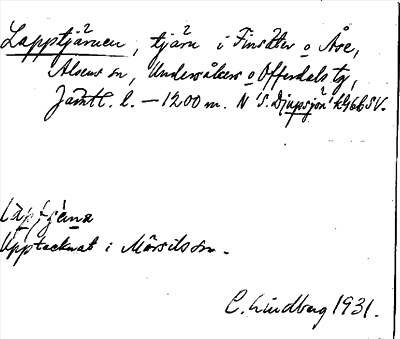 Lapptjärnen, tjärn i Finsäter o Åse,
Alsens sn, Undersåkers o Offerdals tg,
Jämtl. l. – 1200 m. N 'S. Djupsjön' SV.
Upptecknat i Mörsils sn.
C. Lindberg 1931.